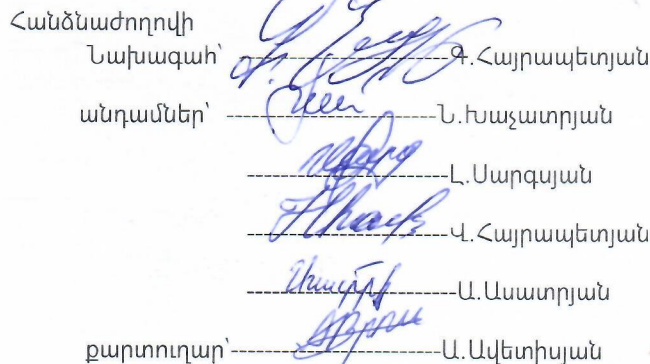 Հանձնաժողովի
Նախագահ՝ -------------------------Գ.Հայրապետյան
անդամներ՝ -------------------------Ն.Խաչատրյան
-------------------------Լ.Սարգսյան
-------------------------Վ.Հայրապետյան
-------------------------Ա.Ասատրյան
քարտուղար՝-------------------------Ա.Ավետիսյան